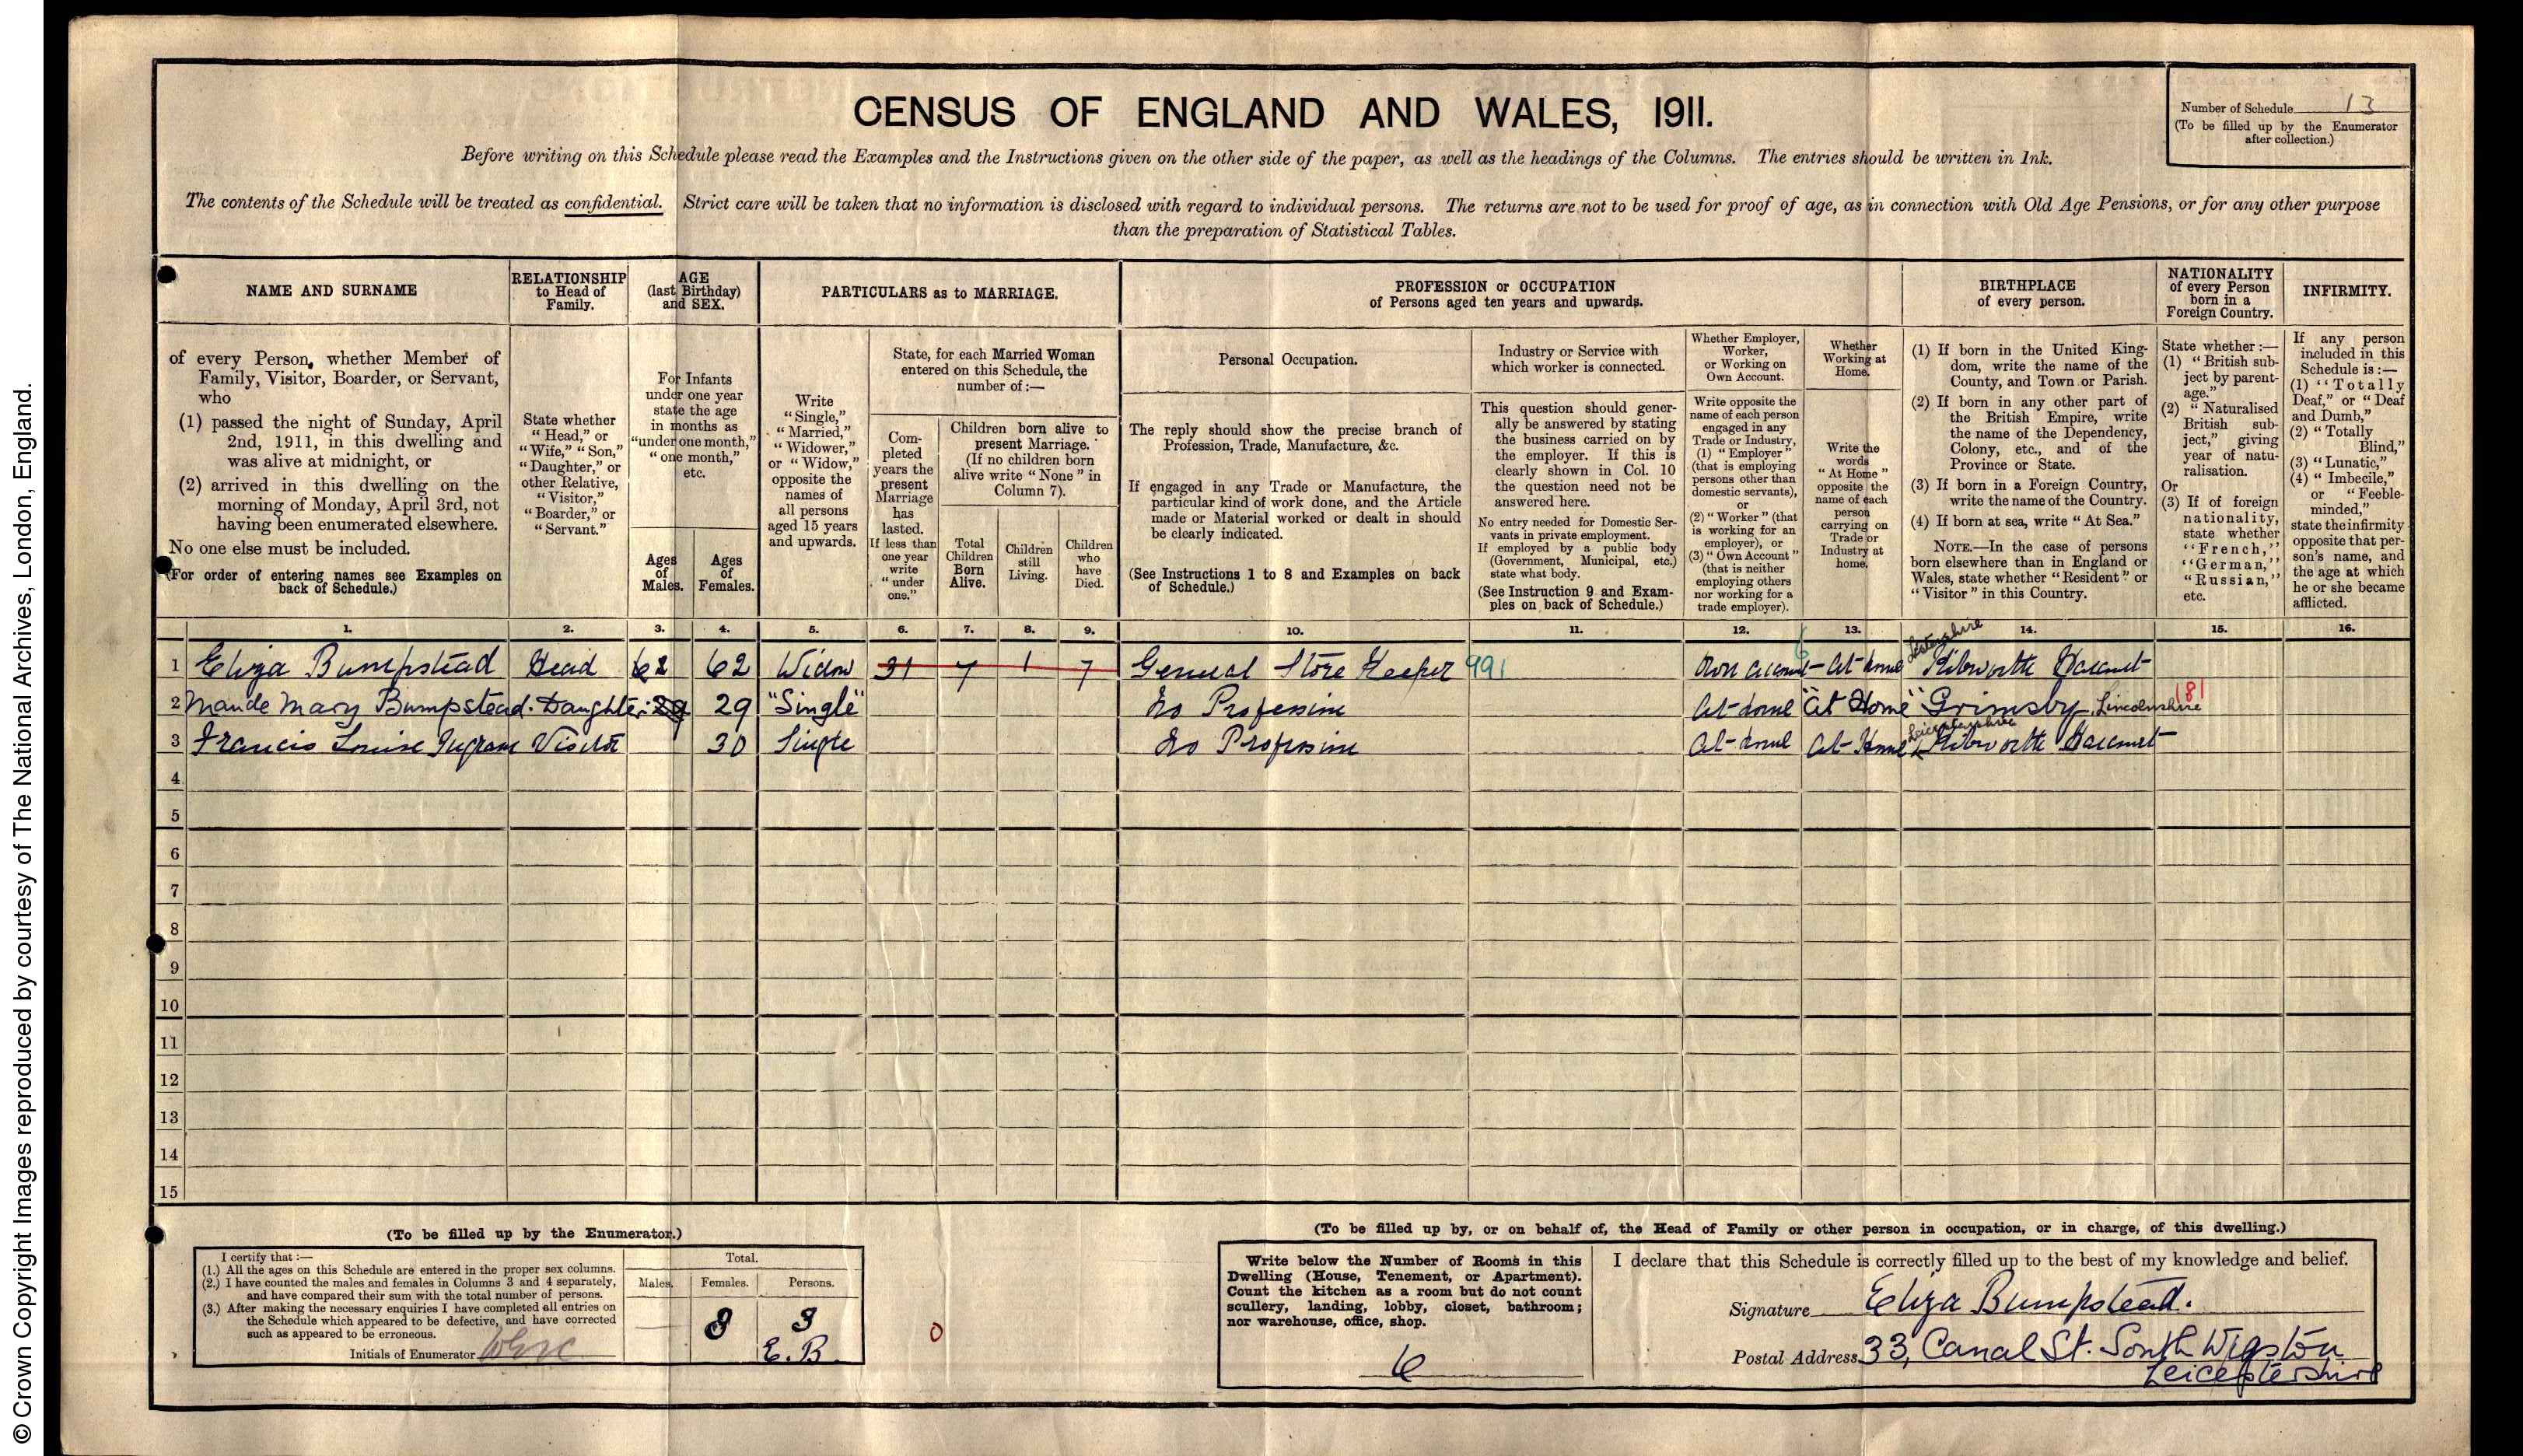 © Crown Copyright Images reproduced by courtesy of The National Archives, London, England.
CENSUS OF ENGLAND AND WALES, 1911.
Number of Schedule 13
(To be filled up by the Enumerator
after collection.)
Before writing on this Schedule please read the Examples and the Instructions given on the other side of the paper, as well as the headings of the Columns. The entries should be written in Ink.
The contents of the Schedule will be treated as confidential. Strict care will be taken that no information is disclosed with regard to individual persons. The returns are not to be used for proof of age, as in connection with Old Age Pensions, or for any other purpose
than the preparation of Statistical Tables.
NAME AND SURNAME
of every Person, whether Member of
Family, Visitor, Boarder, or Servant,
who
(1) passed the night of Sunday, April
2nd, 1911, in this dwelling and
was alive at midnight, or
(2) arrived in this dwelling on the
morning of Monday, April 3rd, not
having been enumerated elsewhere.
No one else must be included.
(For order of entering names see Examples on
back of Schedule.)
RELATIONSHIP
to Head of
Family.
State whether
"Head," or
"Wife," "Son,"
"Daughter," or
other Relative,
"Visitor,"
"Boarder," or
"Servant."
AGE
(last Birthday)
and SEX.
For Infants
under one year
state the age
in months as
"under one month,"
"one month,"
etc.
Ages
of
Males.
Ages
of
Females.
PARTICULARS as to MARRIAGE.
Write
"Single,"
"Married,"
"Widower,"
or "Widow,"
opposite the
names of
all persons
aged 15 years
and upwards.
State, for each Married Woman
entered on this Schedule, the
number of:—
Com-
pleted
years the
present
Marriage
has
lasted.
If less than
one year
write
"under
one."
Children born alive to
present Marriage.
(If no children born
alive write "None" in
Column 7).
Total
Children
Born
Alive.
Children
still
Living.
Children
who
have
Died.
PROFESSION or OCCUPATION
of Persons aged ten years and upwards.
Personal Occupation.
The reply should show the precise branch of
Profession, Trade, Manufacture, &c.
If engaged in any Trade or Manufacture, the
particular kind of work done, and the Article
made or Material worked or dealt in should
be clearly indicated.
(See Instructions 1 to 8 and Examples on back
of Schedule.)
Industry or Service with
which worker is connected.
This question should gener-
ally be answered by stating
the business carried on by
the employer. If this is
clearly shown in Col. 10
the question need not be
answered here.
No entry needed for Domestic Ser-
vants in private employment.
If employed by a public body
(Government, Municipal, etc.)
state what body.
(See Instruction 9 and Exam-
ples on back of Schedule.)
Whether Employer,
Worker,
or Working on
Own Account.
Write opposite the
name of each person
engaged in any
Trade or Industry,
(1) "Employer"
(that is employing
persons other than
domestic servants),
or
(2) "Worker" (that
is working for an
employer), or
(3) "Own Account"
(that is neither
employing others
nor working for a
trade employer).
Whether
Working at
Home.
Write the
words
"At Home"
opposite the
name of each
person
carrying on
Trade or
Industry at
home.
BIRTHPLACE
of every person.
(1) If born in the United King-
dom, write the name of the
County, and Town or Parish.
(2) If born in any other part of
the British Empire, write
the name of the Dependency,
Colony, etc., and of the
Province or State.
(3) If born in a Foreign Country,
write the name of the Country.
(4) If born at sea, write "At Sea."
NOTE.—In the case of persons
born elsewhere than in England or
Wales, state whether "Resident" or
"Visitor" in this Country.
NATIONALITY
of every Person
born in a
Foreign Country.
State whether :—
(1) "British sub-
ject by parent-
age."
(2) "Naturalised
British sub-
ject," giving
year of natu-
ralisation.
Or
(3) If of foreign
nationality,
state whether
"French,"
"German,"
"Russian,"
etc.
INFIRMITY.
If any person
included in this
Schedule is :—
(1) "Totally
Deaf," or "Deaf
and Dumb,"
(2) "Totally
Blind,"
(3) "Lunatic,"
(4) "Imbecile,"
or "Feeble-
minded,"
state the infirmity
opposite that per-
son's name, and
the age at which
he or she became
afflicted.
1. 2. 3. 4. 5. 6. 7. 8. 9. 10. 11. 12. 13. 14. 15. 16.
1 Eliza Bumpstead Head 62 62 Widow 31 7 1 7 General Store Keeper 991 Own account At home Kibworth Harcourt
2 Maude Mary Bumpstead. Daughter 29 29 "Single" No Profession At home "At Home" Grimsby Lincolnshire 181
Leicestershire
3 Francis Louise Ingram Visitor 30 Single No Profession At home At Home Kibworth Harcourt
4
5
6
7
8
9
10
11
12
13
14
15
(To be filled up by the Enumerator.)
I certify that :—
(1.) All the ages on this Schedule are entered in the proper sex columns.
(2.) I have counted the males and females in Columns 3 and 4 separately,
and have compared their sum with the total number of persons.
(3.) After making the necessary enquiries I have completed all entries on
the Schedule which appeared to be defective, and have corrected
such as appeared to be erroneous.
Initials of Enumerator
Total.
Males. Females. Persons.
3 3
E.B.
0
(To be filled up by, or on behalf of, the Head of Family or other person in occupation, or in charge, of this dwelling.)
Write below the Number of Rooms in this
Dwelling (House, Tenement, or Apartment).
Count the kitchen as a room but do not count
scullery, landing, lobby, closet, bathroom;
nor warehouse, office, shop.
6
I declare that this Schedule is correctly filled up to the best of my knowledge and belief.
Signature Eliza Bumpstead.
Postal Address 33, Canal St. South Wigston
Leicestershire